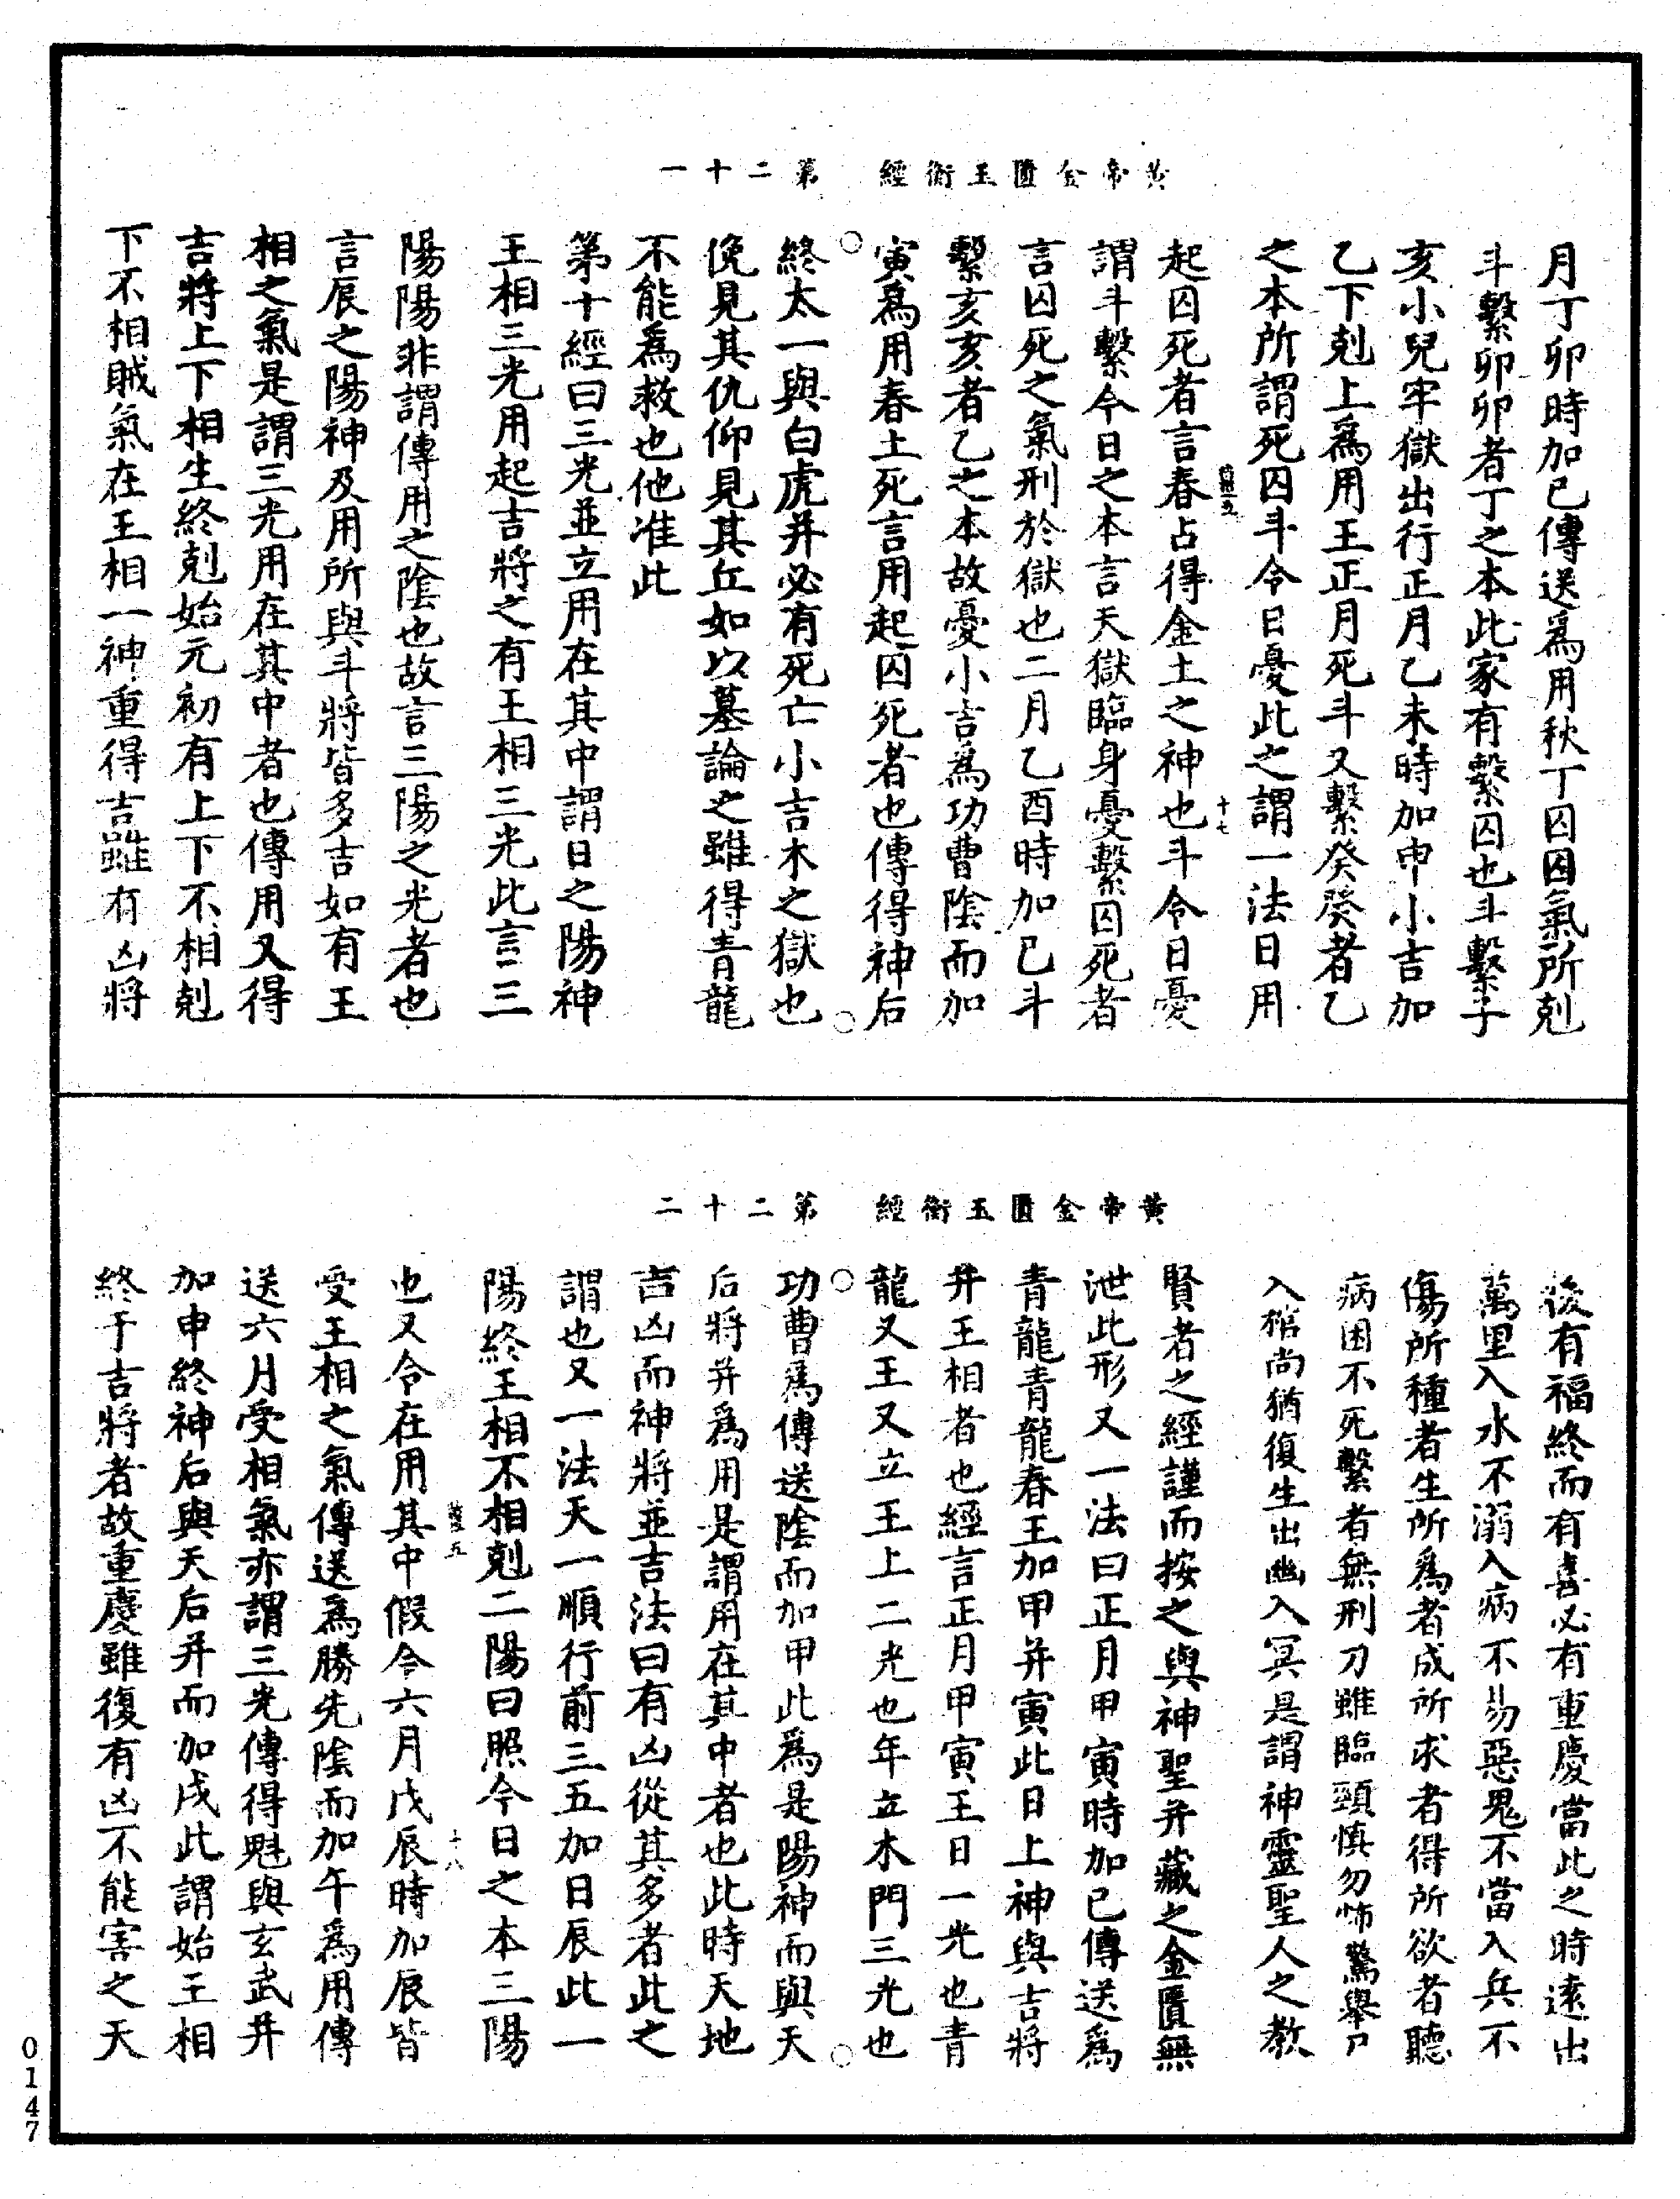 黃帝金匱玉衡經　第二十一
月丁卯時加巳傳送爲用秋丁囚囚氣所剋
斗繫卯卯者丁之本此家有繫囚也斗繫子
亥小兒牢獄出行正月乙未時加申小吉加
乙下剋上爲用王正月死斗又繫癸癸者乙
之本所謂死囚斗令日憂此之謂一法日用
十七
起囚死者言春占得金土之神也斗令日憂
謂斗繫今日之本言天獄臨身憂繫囚死者
言囚死之氣刑於獄也二月乙酉時加巳斗
繫亥亥者乙之本故憂小吉爲功曹陰而加
寅爲用春土死言用起囚死者也傳得神后
終太一與白虎并必有死亡小吉木之獄也
俛見其仇仰見其丘如以墓論之雖得青龍
不能爲救也他准此
第十經曰三光並立用在其中謂日之陽神
王相三光用起吉將之有王相三光此言三
陽陽非謂傳用之陰也故言三陽之光者也
言辰之陽神及用所與斗將皆多吉如有王
相之氣是謂三光用在其中者也傳用又得
吉將上下相生終剋始元初有上下不相剋
下不相賊氣在王相一神重得吉雖有凶將
黃帝金匱玉衡經　第二十二
後有福終而有喜必有重慶當此之時遠出
萬里入水不溺入病不易惡鬼不當入兵不
傷所種者生所爲者成所求者得所欲者聽
病困不死繫者無刑刀雖臨頸慎勿怖驚舉尸
入棺尚猶復生出幽入冥是謂神靈聖人之教
賢者之經謹而按之與神聖并藏之金匱無
泄此形又一法曰正月甲寅時加巳傳送爲
青龍青龍春王加甲并寅此日上神與吉將
并王相者也經言正月甲寅王日一光也青
龍又王又立王上二光也年立木門三光也
功曹爲傳送陰而加甲此爲是陽神而與天
后將并爲用是謂用在其中者也此時天地
吉凶而神將並吉法曰有凶從其多者此之
謂也又一法天一順行前三五加日辰此一
陽終王相不相剋二陽曰照今日之本三陽
十八
也又令在用其中假令六月戊辰時加辰皆
受王相之氣傳送爲勝先陰而加午爲用傳
送六月受相氣亦謂三光傳得魁與玄武并
加申終神后與天后并而加戌此謂始王相
終于吉將者故重慶雖復有凶不能害之天
0147